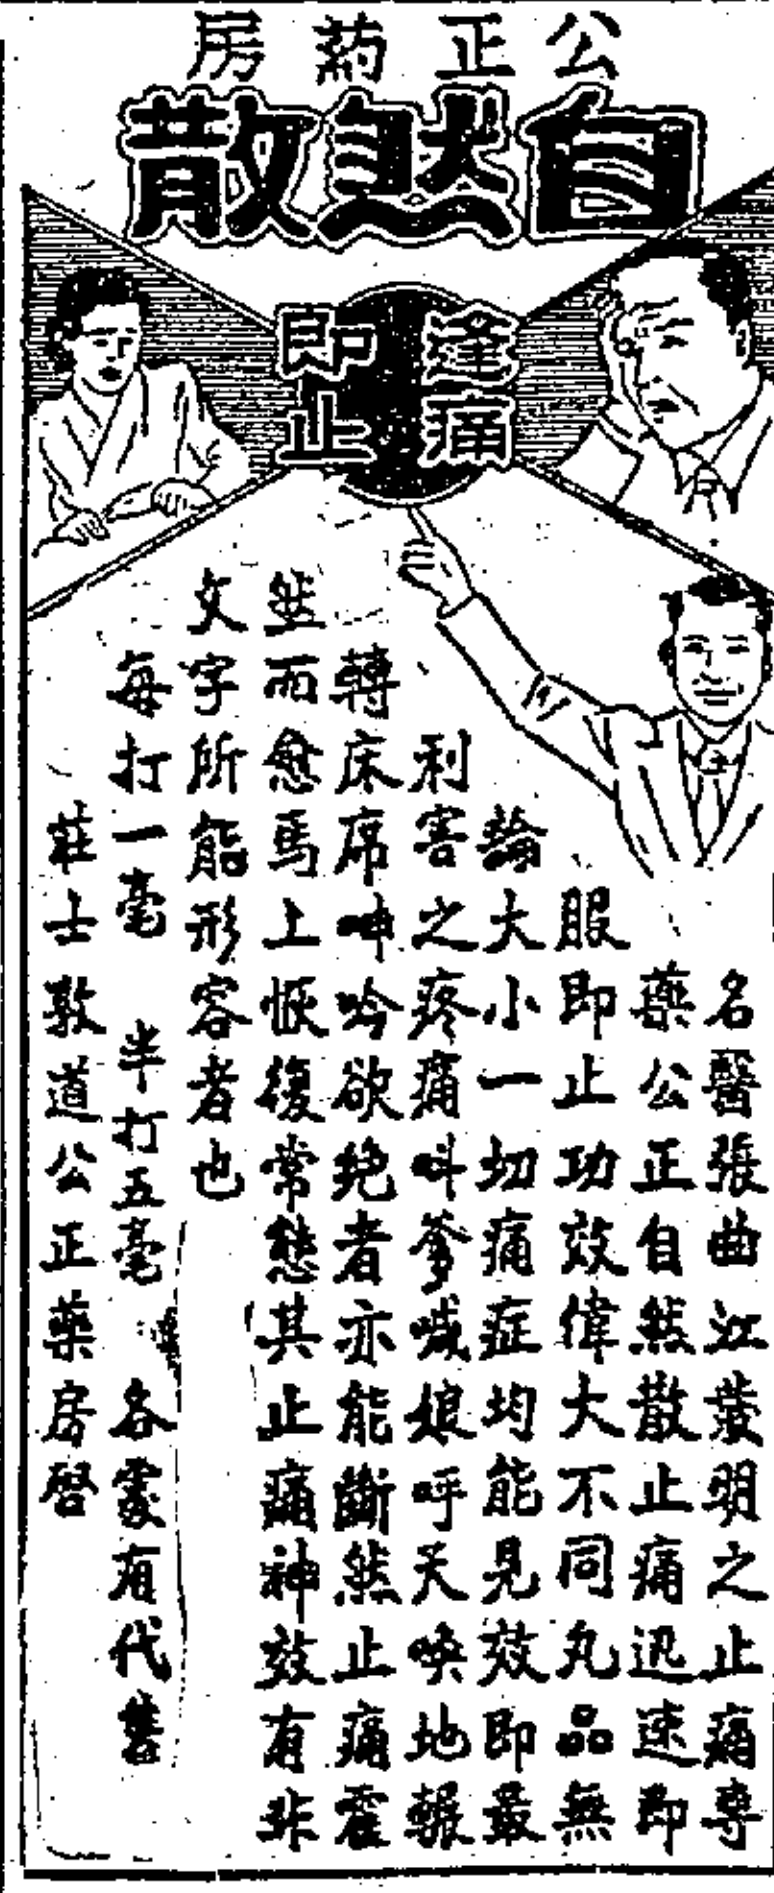 公正葯房
自然散
逢痛
即止
名醫張曲江發明之止痛專
藥公正自然散止痛迅速即
服即止功效偉大不同丸品無
論大小一切痛症均能見效即最
利害之疼痛叫爹喊娘呼天喚地輾
轉床席呻吟欲絶者亦能斷然止痛霍
然而愈馬上恢復常態其止痛神效有非
文字所能形容者也
每打一毫 半打五毫 各處有代售
莊士敦道公正藥房啓